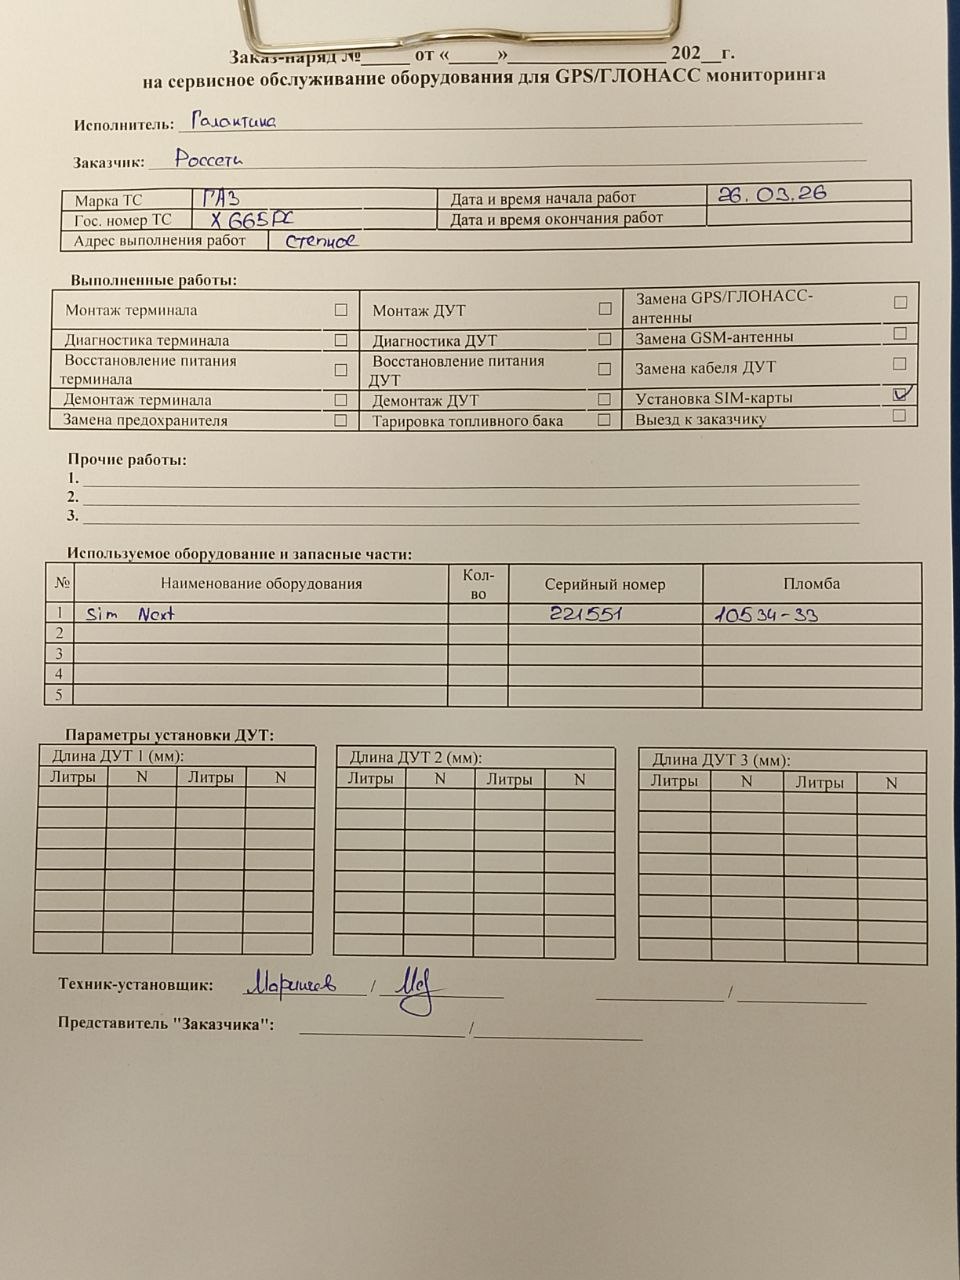 Заказ-наряд №_____ от «_____»________________ 202__г.
на сервисное обслуживание оборудования для GPS/ГЛОНАСС мониторинга
Исполнитель: Галактика
Заказчик: Россети
Марка ТС ГАЗ Дата и время начала работ 26.03.26
Гос. номер ТС Х 665 РС Дата и время окончания работ
Адрес выполнения работ Степное
Выполненные работы:
Монтаж терминала ☐ Монтаж ДУТ ☐ Замена GPS/ГЛОНАСС-антенны ☐
Диагностика терминала ☐ Диагностика ДУТ ☐ Замена GSM-антенны ☐
Восстановление питания терминала ☐ Восстановление питания ДУТ ☐ Замена кабеля ДУТ ☐
Демонтаж терминала ☐ Демонтаж ДУТ ☐ Установка SIM-карты ☑
Замена предохранителя ☐ Тарировка топливного бака ☐ Выезд к заказчику ☐
Прочие работы:
1.
2.
3.
Используемое оборудование и запасные части:
№ Наименование оборудования Кол-во Серийный номер Пломба
1 Sim Next 221551 10534-33
2
3
4
5
Параметры установки ДУТ:
Длина ДУТ 1 (мм): Длина ДУТ 2 (мм): Длина ДУТ 3 (мм):
Литры N Литры N Литры N Литры N Литры N Литры N
Техник-установщик: / /
Представитель "Заказчика": /